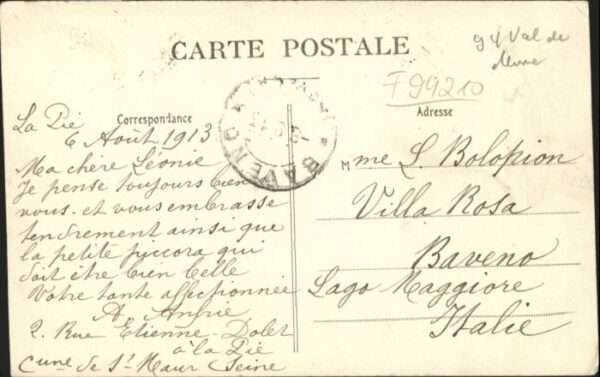 CARTE POSTALE
94 Val de Marne
F 94210
Correspondance
Adresse
La Pie
6 Août 1913
Ma chère Léonie
Je pense toujours bien
vous et vous embrasse
tendrement ainsi que
la petite piccora qui
doit être bien belle
Votre tante affectionnée
A. Annie
2. Rue Etienne-Dolet
à la Pie
Cune de St Maur Seine
Mme L. Bolopion
Villa Rosa
Baveno
Lago Maggiore
Italie
BAVENO